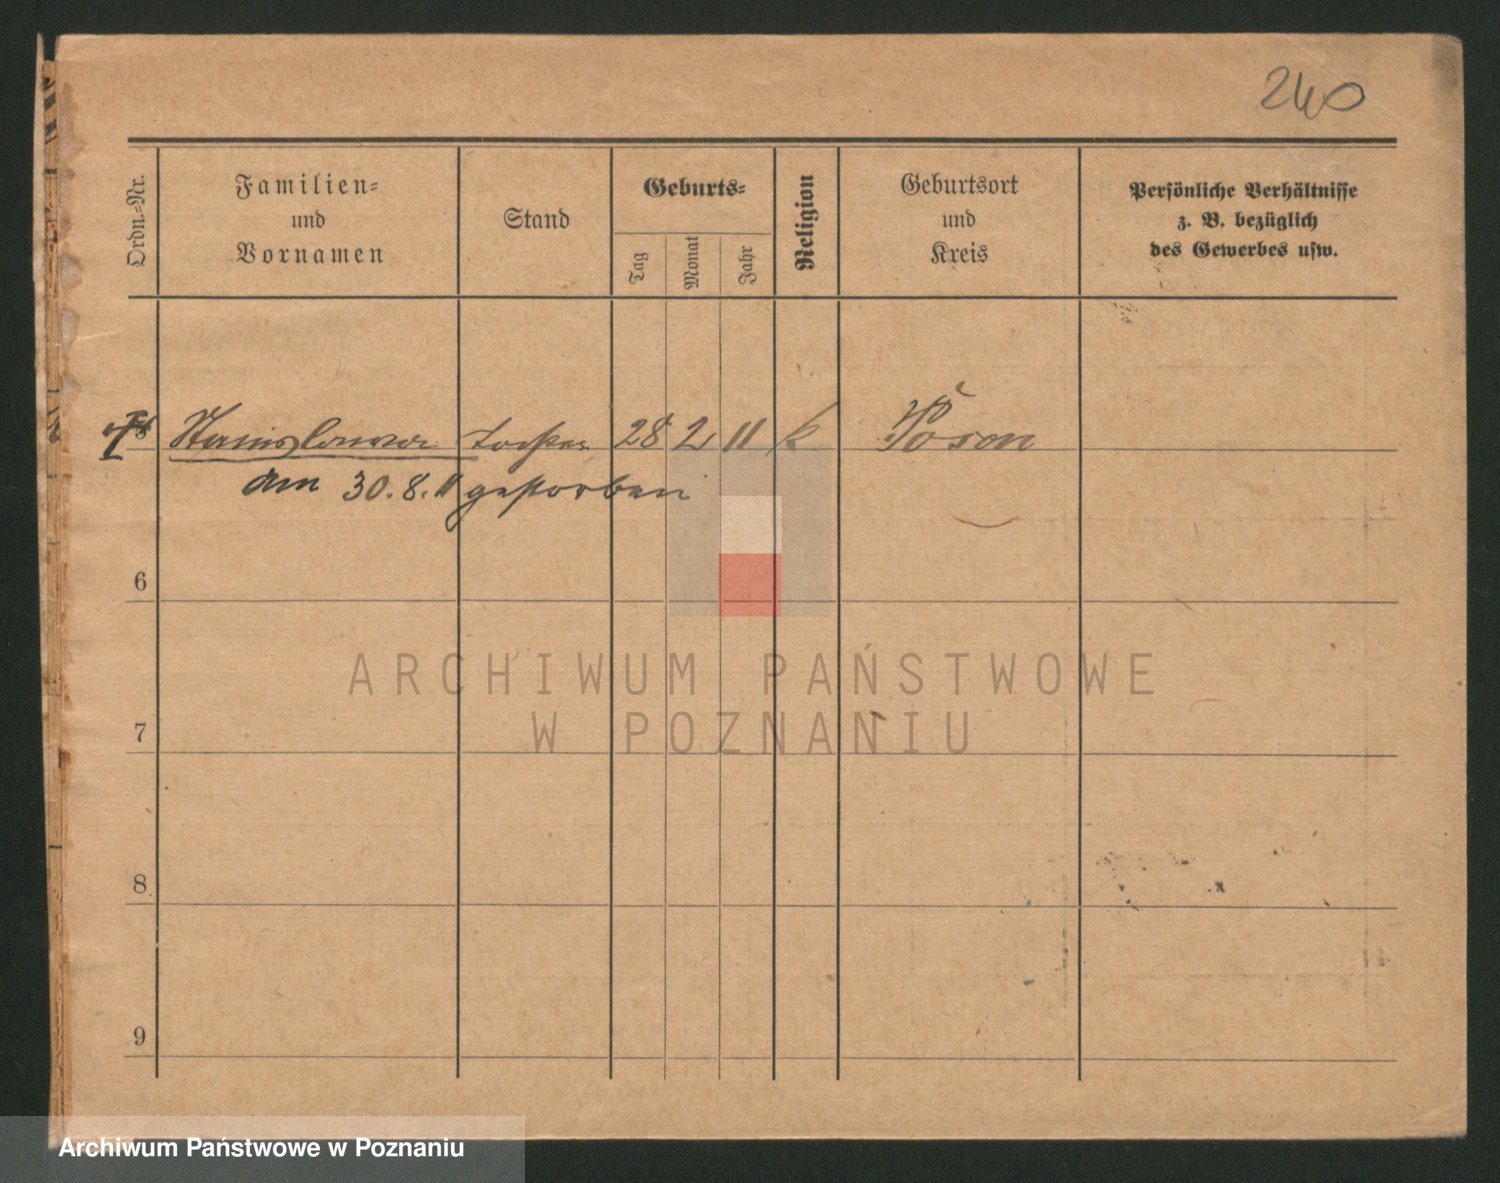 240
Ordn.-Nr.
Familien-
und
Vornamen
Stand
Geburts-
Tag
Monat
Jahr
Religion
Geburtsort
und
Kreis
Persönliche Verhältnisse
z. B. bezüglich
des Gewerbes usw.
5 Stanislawa Tochter 28 2 11 k Posen
am 30.8.11 gestorben
6
7
8
9
ARCHIWUM PAŃSTWOWE
W POZNANIU
Archiwum Państwowe w Poznaniu